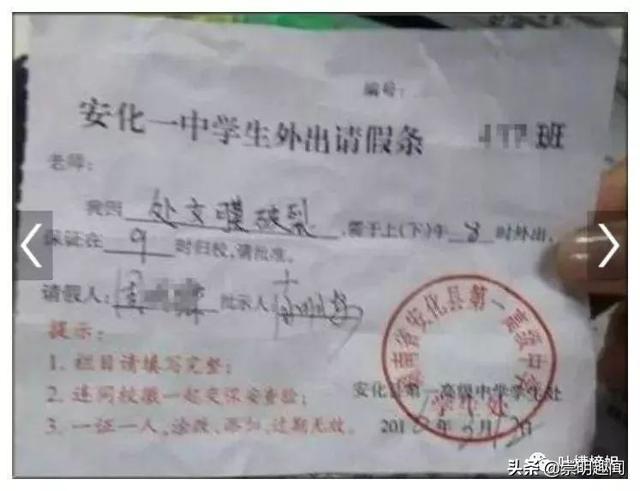 编号:
安化一中学生外出请假条 班
老师:
我因 处女膜破裂 ,需于上(下)午 8 时外出,
保证在 9 时归校,请批准。
请假人: 批示人:
提示:
1. 栏目请填写完整;
2. 连同校徽一起交保安查验;
3. 一证一人,涂改、添加、过期无效。
安化县第一高级中学学生处
201 年 月 日
湖南省安化县第一高级中学
学生处
吐槽
头条@崇明趣闻